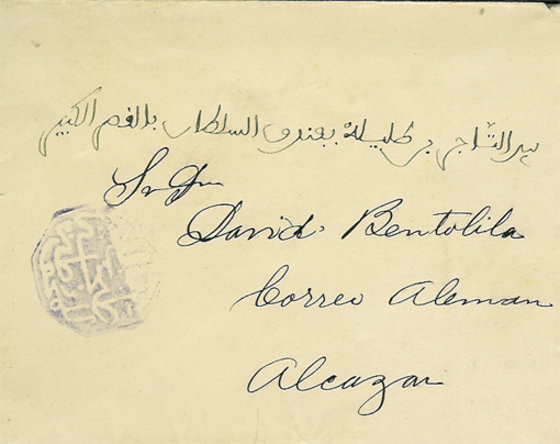 بيد التاجر بن طليلة بفندق السلطان بالقصر الكبير
Sr Dn
David Bentolila
Correo Aleman
Alcazar